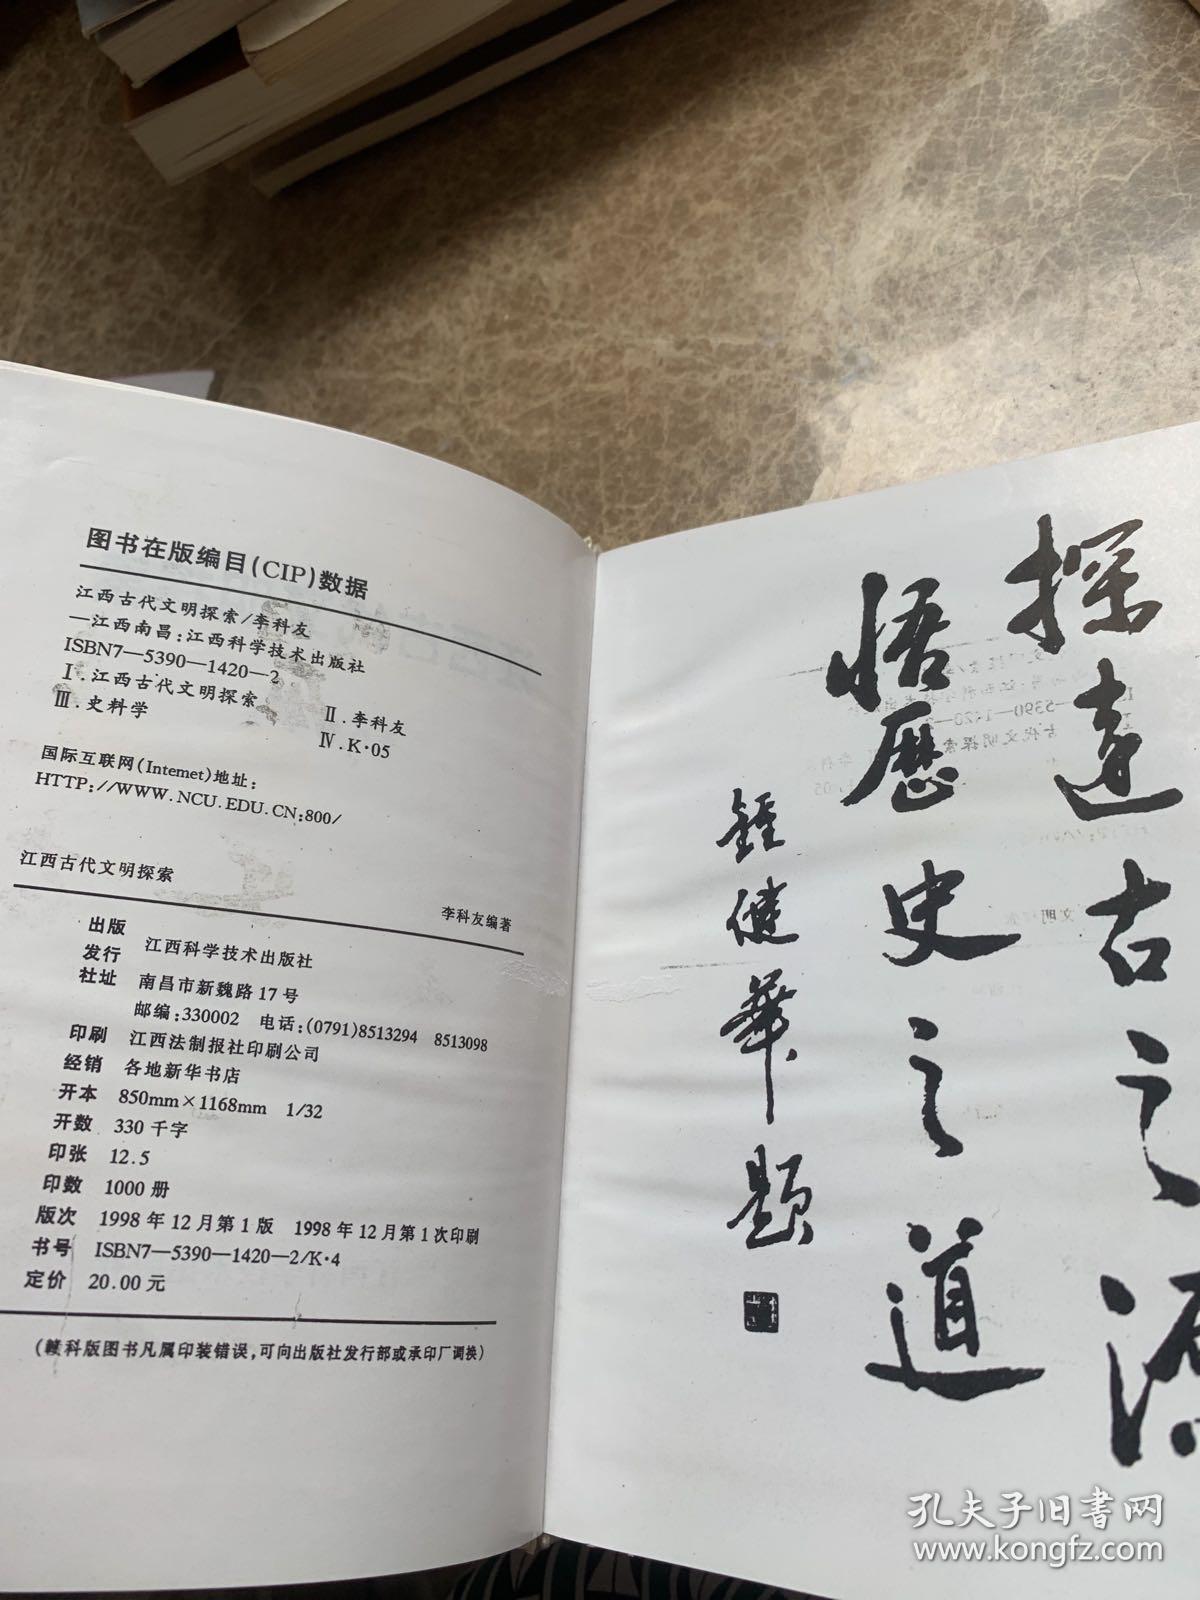 图书在版编目(CIP)数据
江西古代文明探索/李科友
—江西南昌:江西科学技术出版社
ISBN7—5390—1420—2
Ⅰ.江西古代文明探索 Ⅱ.李科友
Ⅲ.史料学 Ⅳ.K·05
国际互联网(Internet)地址:
HTTP://WWW.NCU.EDU.CN:800/
江西古代文明探索
李科友编著
出版
发行 江西科学技术出版社
社址 南昌市新魏路17号
邮编:330002 电话:(0791)8513294 8513098
印刷 江西法制报社印刷公司
经销 各地新华书店
开本 850mm×1168mm 1/32
开数 330千字
印张 12.5
印数 1000册
版次 1998年12月第1版 1998年12月第1次印刷
书号 ISBN7—5390—1420—2/K·4
定价 20.00元
(赣科版图书凡属印装错误,可向出版社发行部或承印厂调换)
探遠古之源
悟歷史之道
鍾健華題
孔夫子旧书网
www.kongfz.com